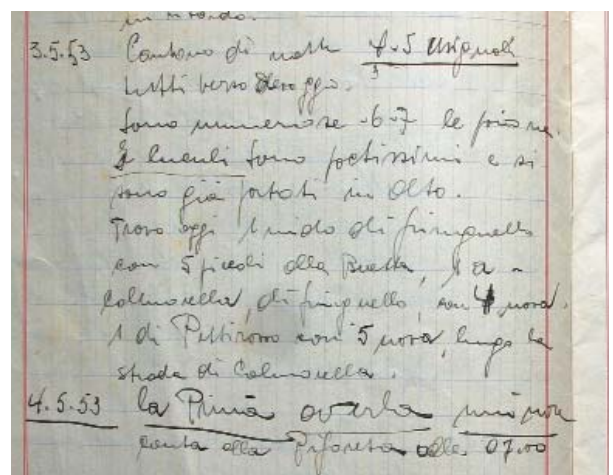 in ritardo.
3.5.53 Cantano di notte 4-5 usignoli
tutti verso
Sono numerose -6-7 le
I luculi sono foltissimi e si
sono già portati in alto.
Trovo oggi 1 nido di fringuello
con 5 piccoli alla Buetta, 1 a -
Colmorella, di fringuello, con 4 uova.
1 di Pettirosso con 5 uova, lungo la
strada di Colmorella.
4.5.53 la Prima averla minore
canta alla alle 07.00